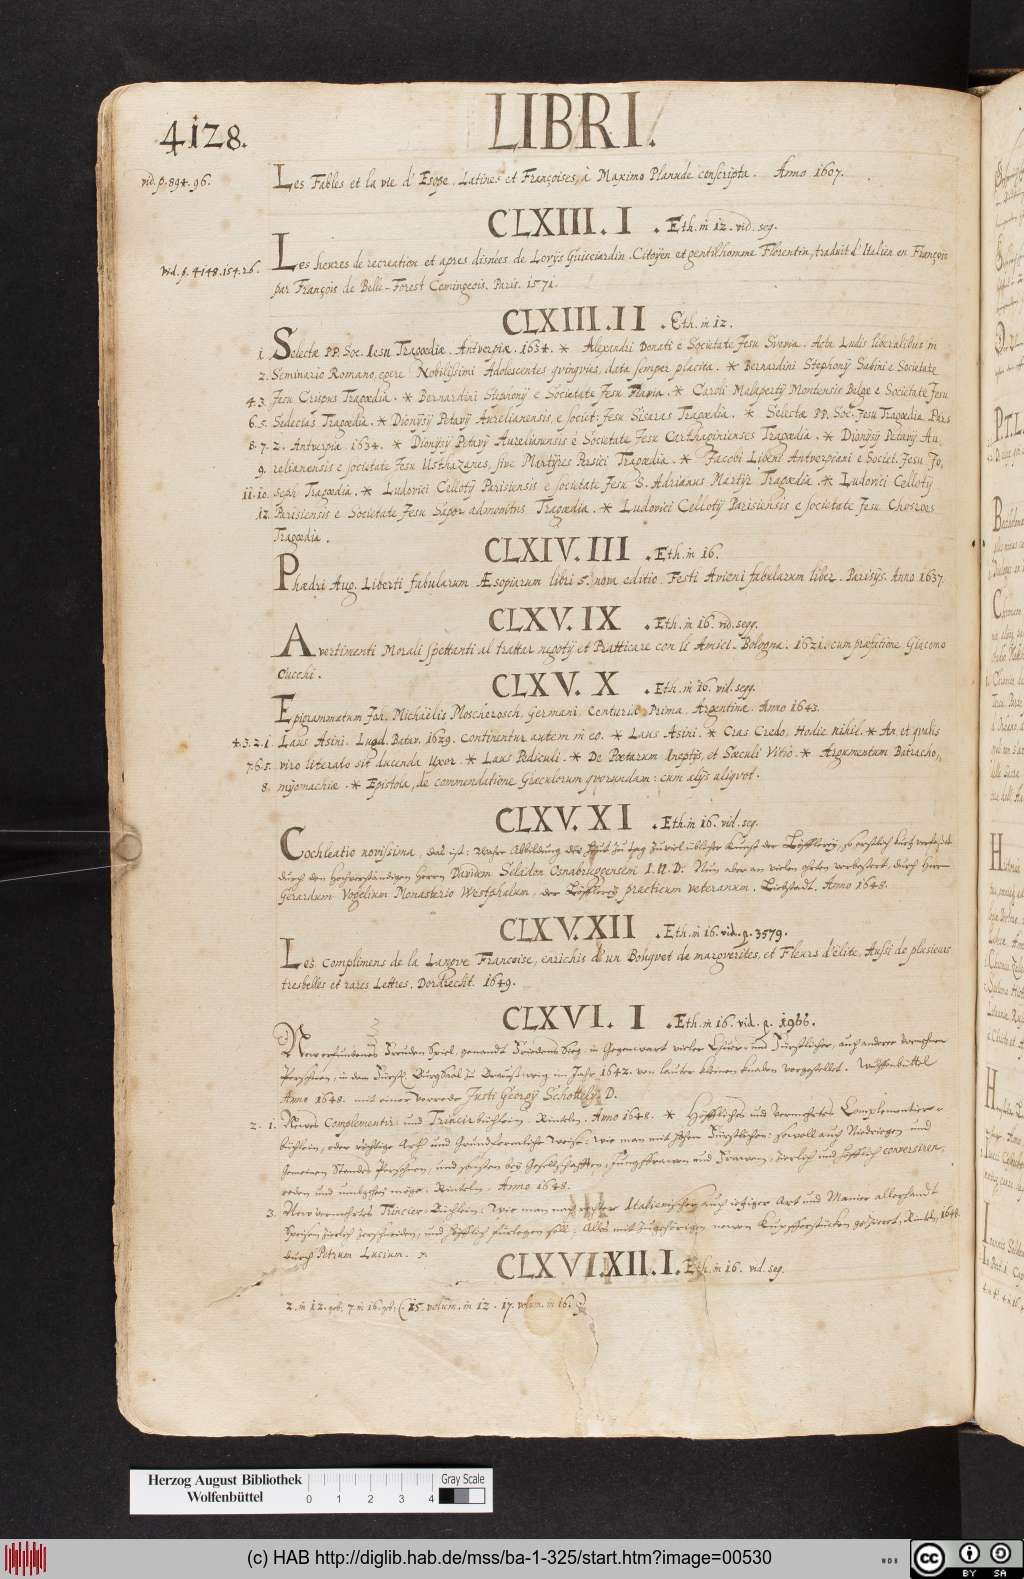 4128.
LIBRI.
vid. p. 894. 96.
Les Fables et la vie d' Esope. Latines et Françoises, à Maximo Planude conscripta. Anno 1607.
CLXIII. I . Eth. in 12. vid. seg.
vid. p. 4148. 154. 26.
Les heures de recreation et apres disnées de Lovijs Guicciardin. Citoijen et gentilhomme Florentin, traduit d' Italien en François
par François de Belle-Forest Comingeois. Paris. 1571.
CLXIII. II . Eth. in 12.
1. Selectæ PP. Soc. Iesu Tragœdiæ. Antverpiæ. 1634. * Alexandri Donati è Societate Jesu Svevia. Acta Ludis liberalibus in
2. Seminario Romano, opere Nobilissimi Adolescentes qvinqvies, data semper placita. * Bernardini Stephonij Sabini è Societate
4. 3. Jesu Crispus Tragœdia. * Bernardini Stephonij è Societate Jesu Flavia. * Caroli Malapertij Montensis Belgæ è Societate Jesu
6. 5. Sedecias Tragœdia. * Dionijsij Petavij Aurelianensis è Societ: Jesu Sisaras Tragœdia. * Selectæ PP. Soc. Jesu Tragœdiæ. Pars
8. 7. 2. Antverpiæ. 1634. * Dionijsij Petavij Aurelianensis è Societate Jesu Carthaginienses Tragœdia. * Dionijsij Petavij Au„
9. relianensis è societate Jesu Usthazanes, sive Martijres Persici Tragœdia. * Jacobi Libeni Antverpiani è Societ. Jesu Jo„
11. 10. seph Tragœdia. * Ludovici Cellotij Parisiensis è societate Jesu S. Adrianus Martijr Tragœdia. * Ludovici Cellotij
12. Parisiensis è Societate Jesu Sapor admonitus Tragœdia. * Ludovici Cellotij Parisiensis è societate Jesu Chosroes
Tragœdia.
CLXIV. III . Eth. in 16.
Phædri Aug. Liberti fabularum Æsopiarum libri 5. nova editio. Festi Avieni fabularum liber. Parisijs. Anno 1637.
CLXV. IX . Eth. in 16. vid. segg.
Avertimenti Morali spettanti al trattar negotij et Pratticare con li Amici. Bologna. 1621. cum præfatione Giacomo
Cucchi.
CLXV. X . Eth. in 16. vid. segg.
Epigrammatum Joh. Michaëlis Moscherosch, Germani, Centuria Prima. Argentinæ. Anno 1643.
4. 3. 2. 1. Laus Asini. Lugd. Batav. 1629. Continentur autem in eo. * Laus Asini. * Cras Credo, Hodie nihil. * An et qvalis
7. 6. 5. viro literato sit ducenda Uxor. * Laus Pediculi. * De Poëtarum Ineptijs, et Sæculi Vitio. * Argumentum Batracho„
8. mijomachiæ. * Epistola, de commendatione Giaculorum qvorundam: cum alijs aliqvot.
CLXV. XI . Eth. in 16. vid. seg.
Cochleatio novissima, das ist: Wahre Abbildung der heut zu tag zuviel üblicher Kunst der Löffelerey, so erstlich kurtz verfasset
durch den hochverständigen Herren Davidem Seladon Osnabrugensem I. U. D. Nun aber an vielen ohrten verbessert, durch Herr
Gerardum Vogelium Monasterio Westphalum, der Löffelerey practicum veteranum. Liebstadt. Anno 1648.
CLXV. XII . Eth. in 16. vid. p. 3579.
Les Complimens de la Langve Francoise, enrichis d'un Bouqvet de margverites, et Fleurs d'elite, Aussi de plusieurs
tresbelles et rares Lettres. Dordrecht. 1649.
CLXVI. I . Eth. in 16. vid. p. 1966.
New erfundenes Freuden Spiel, genandt Friedens Sieg, in Gegenwart vieler Chur- und Fürstlicher, auch anderer vornehmen
Personen, in dem Fürstl. Burg Saal zu Braunschweig im Jahr 1642. von lauter kleinen knaben vorgestellet. Wulffenbüttel
Anno 1648. mit einer vorrede Justi Georgij Schottelij. D.
2. 1. Newes Complementir- und Trincir büchlein. Rinteln. Anno 1648. * Höffliches und vermehrtes Complementier-
büchlein, oder richtige Arth und Grundformliche Weise, Wie man mit hohen Fürstlichen: sowoll auch Niedrigen und
Gemeinen Standes Personen, und sonsten bey Gesellschafften, Jungffrawen und Frawen, zierlich und höfflich conversiren,
reden und umbgehen möge. Rinteln. Anno 1648.
3. New vermehrtes Trincier-Büchlein: Wie man nach rechter Italienischer auch itziger Art und Manier allerhandt
Speisen zierlich zerschneiden, und höfflich fürlegen soll. Alles mit zugehörigen newen Kupfferstücken gezieret, Rinteln, 1648.
durch Petrum Lucium.
CLXVI. XII. I. Eth. in 16. vid. seg.
2. in 12. geb. 7. in 16. geb. (. 15. volum. in 12. 17. volum. in 16.
Herzog August Bibliothek
Wolfenbüttel
0 1 2 3 4
Gray Scale
(c) HAB http://diglib.hab.de/mss/ba-1-325/start.htm?image=00530
WDB
cc BY SA